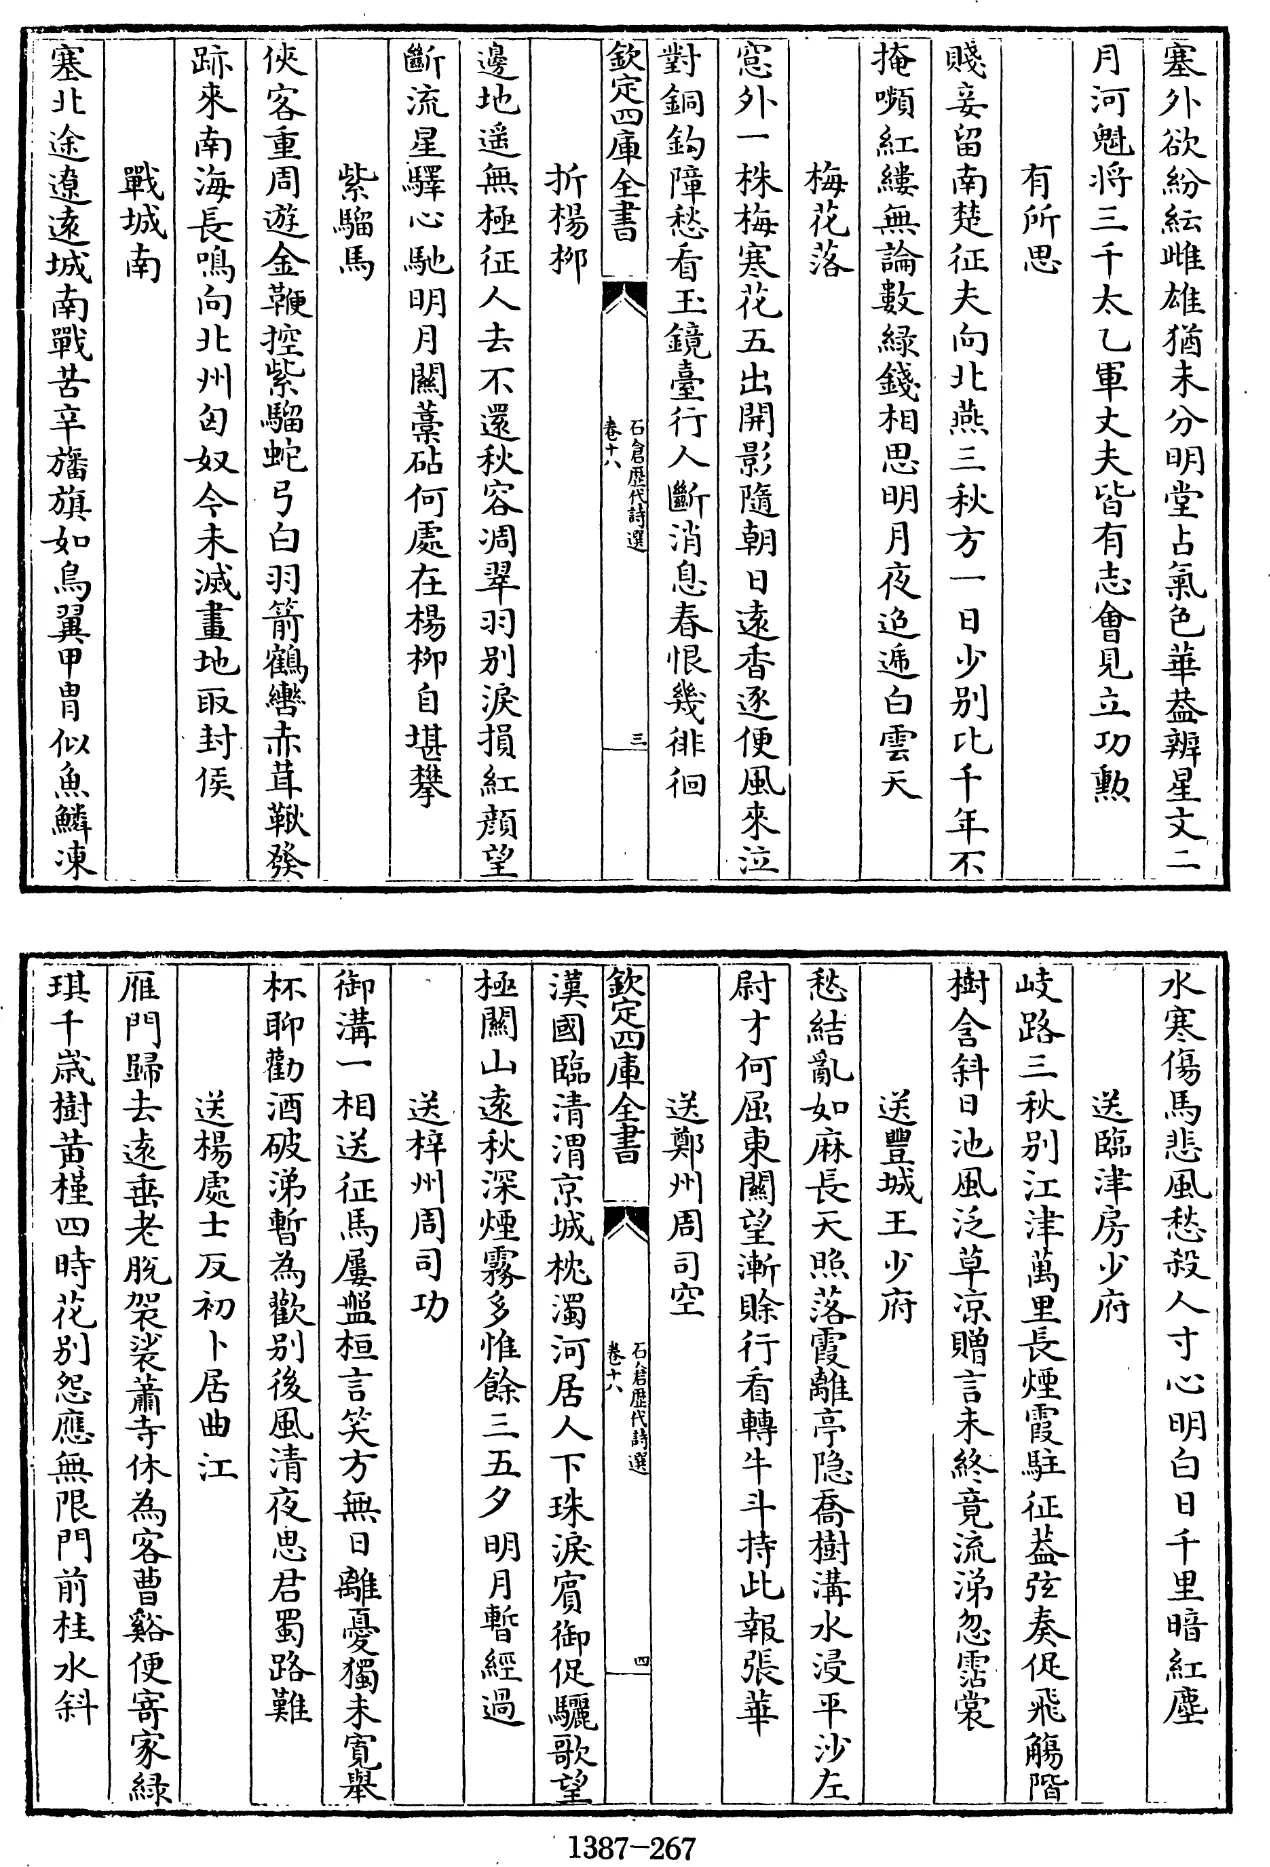 塞外欲紛紜雌雄猶未分明堂占氣色華葢辨星文二
月河魁將三千太乙軍丈夫皆有志會見立功勲
有所思
賤妾留南楚征夫向北燕三秋方一日少别比千年不
掩嚬紅縷無論數緑錢相思明月夜迢遞白雲天
梅花落
窓外一株梅寒花五出開影隨朝日逺香逐便風來泣
對銅鈎障愁看玉鏡臺行人斷消息春恨幾徘徊
欽定四庫全書
石倉歴代詩選
卷十八
三
折楊栁
邊地遥無極征人去不還秋容凋翠羽别淚損紅顔望
斷流星驛心馳明月關藁砧何處在楊栁自堪攀
紫騮馬
俠客重周遊金鞭控紫騮蛇弓白羽箭鶴轡赤茸鞦發
跡來南海長鳴向北州匈奴今未滅畫地取封侯
戰城南
塞北途遼逺城南戰苦辛旛旗如鳥翼甲胄似魚鱗凍
水寒傷馬悲風愁殺人寸心明白日千里暗紅塵
送臨津房少府
岐路三秋别江津萬里長煙霞駐征葢弦奏促飛觴階
樹含斜日池風泛草凉贈言未終竟流涕忽霑裳
送豐城王少府
愁結亂如麻長天照落霞離亭隐喬樹溝水浸平沙左
尉才何屈東關望漸賖行看轉牛斗持此報張華
送鄭州周司空
欽定四庫全書
石倉歴代詩選
卷十八
四
漢國臨清渭京城枕濁河居人下珠淚賓御促驪歌望
極關山逺秋深煙霧多惟餘三五夕明月暫經過
送梓州周司功
御溝一相送征馬屢盤桓言笑方無日離憂獨未寛舉
杯聊勸酒破涕暫為歡别後風清夜思君蜀路難
送楊處士反初卜居曲江
雁門歸去逺垂老脱袈裟蕭寺休為客曹谿便寄家緑
琪千嵗樹黄槿四時花别怨應無限門前桂水斜
1387-267